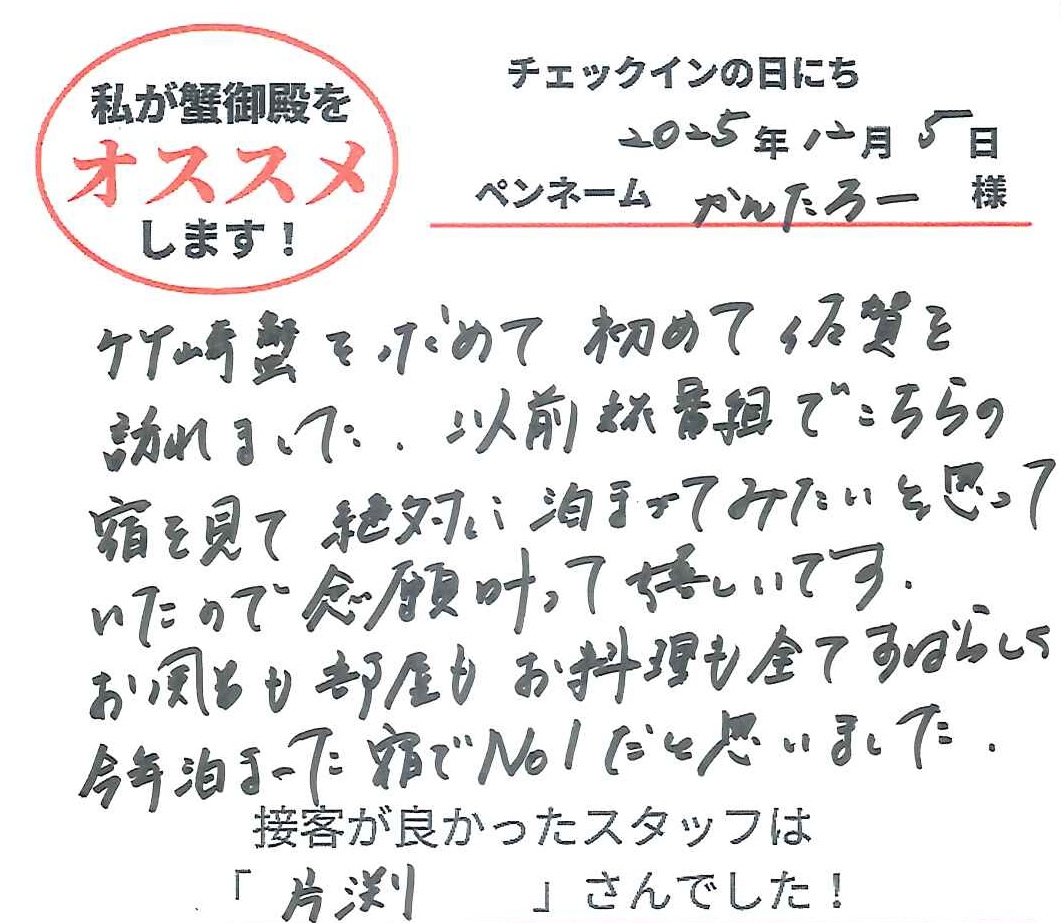 私が蟹御殿を
オススメ
します！
チェックインの日にち
2025年12月5日
ペンネーム かんたろー 様
竹崎蟹を求めて 初めて佐賀を
訪れました. 以前 旅番組でこちらの
宿を見て 絶対に泊まってみたいと思って
いたので 念願叶って嬉しいです.
お風呂も部屋もお料理も全てすばらしく
今年泊まった宿でNo1だと思いました.
接客が良かったスタッフは
「片渕」さんでした！